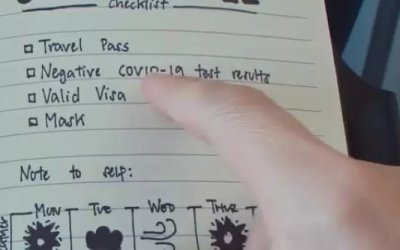 Checklist
Travel Pass
Negative COVID-19 test results
Valid Visa
Mask
Note to self:
MON TUE WED THUR